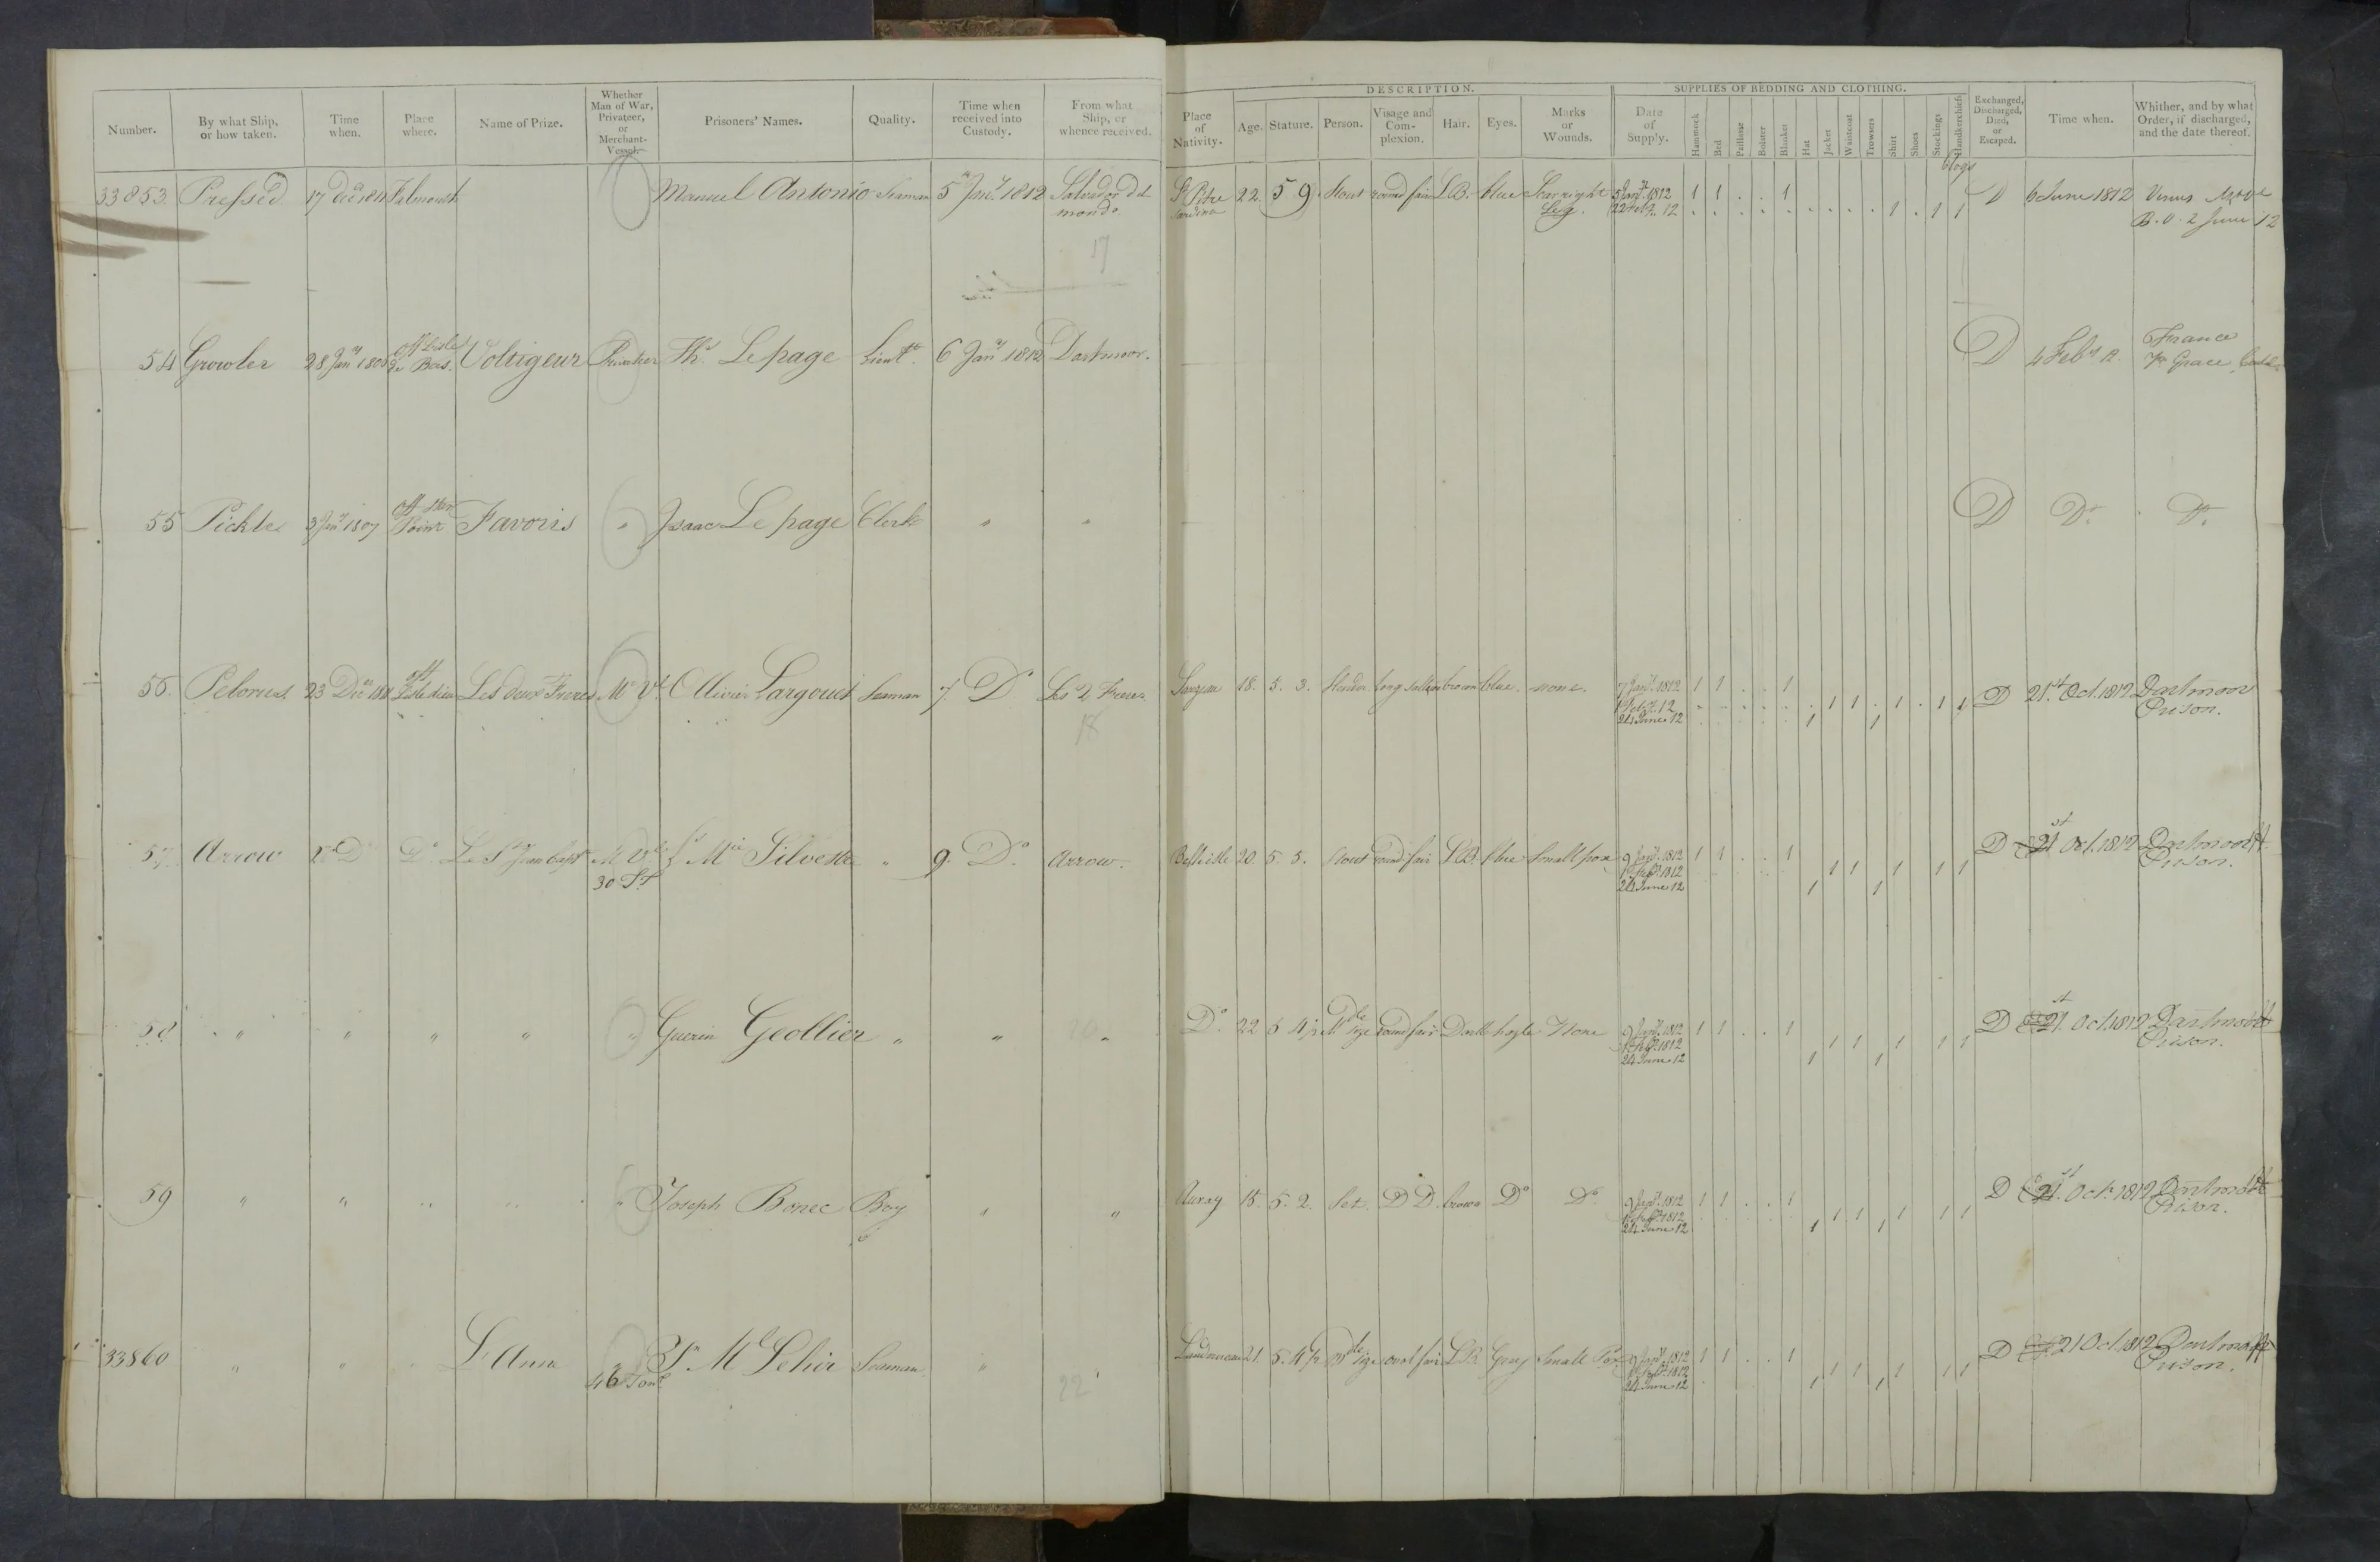 DESCRIPTION. SUPPLIES OF BEDDING AND CLOTHING.
Number. By what Ship, or how taken. Time when. Place where. Name of Prize. Whether Man of War, Privateer, or Merchant-Vessel. Prisoners' Names. Quality. Time when received into Custody. From what Ship, or whence received. Place of Nativity. Age. Stature. Person. Visage and Complexion. Hair. Eyes. Marks or Wounds. Date of Supply. Hammock Bed Paillasse Bolster Blanket Hat Jacket Waistcoat Trowsers Shirt Shoes Stockings Handkerchiefs Exchanged, Discharged, Died, or Escaped. Time when. Whither, and by what Order, if discharged, and the date thereof.
Clogs
33853 Pressed 17 Decr 1811 Falmouth Manuel Antonio Seaman 5th Jany 1812 Salvador del mondo St Pitre Sardina 22 5 9 Stout round fair L.B. blue Scar right Leg. 5 Jany 1812 1 1 . . 1 D 6 June 1812 Venus
22 Feby 12 1 . 1 1 B.O. 2 June 12
17
54 Growler 28 Jany 180 off L'isle de Bas. Voltigeur Privateer Ths Lepage Lieutt 6 Jany 1812 Dartmoor. D 4 Feby 12. France pr Grace
55 Pickle 3 Jany 1807 off Start Point Favoris " Isaac Lepage Clerk " " D Do Do
56 Pelorus 23 Decr 1811 off Isle dieu Les deux Freres M Vl Ollivier Largouet Seaman 7. Do Les 2 Freres Sarzeau 18. 5. 3. Slender long sallow brown blue. none. 7 Jany 1812 1 1 . . 1 D 21st Oct. 1812 Dartmoor Prison.
1 Feby 12 1 1 . 1 . 1 1
24 June 12 1 1
18
57 Arrow Do Do Le St Jean Bapt M Vl 30 Ts Js Mie Silvestre " 9. Do Arrow. Bellisle 20. 5. 5. Stout round fair L.B. blue Small pox 9 Jany 1812 1 1 . . 1 D 21st Oct. 1812 Dartmoor Prison.
1812 1 1 1 1 1
24 June 12 1 1
58 " " " " " Guerin Geollier " " " Do 22 5 4½ Mdle Size round fair Dark hazle None 9 Jany 1812 1 1 . . 1 D 21st Oct. 1812 Dartmoor Prison.
1812 1 1 1 1 1
24 June 12 1 1
59 " " " " " Joseph Bonec Boy " " Auray 15. 5. 2. Set. Do Do brown Do Do 9 Jany 1812 1 1 . . 1 D 21st Oct. 1812 Dartmoor Prison.
1812 1 1 1 1 1
24 June 12 1 1
33860 " " L'Ann " 46 Tons Seaman " Landerneau 21. 5. 4½ Mdle Size oval fair L.B. Gray Small Pox 9 Jany 1812 1 1 . . 1 D 21 Oct 1812 Dartmoor Prison.
1812 1 1 1 1 1
24 June 12 1 1
22